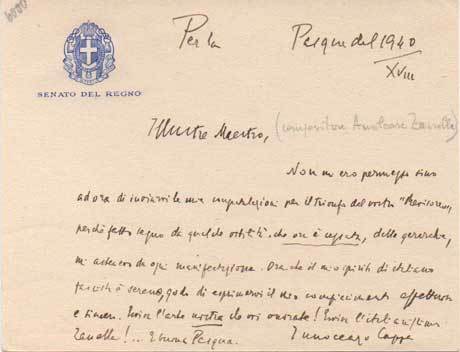 6000
Per la Pasqua del 1940
XVIII
SENATO DEL REGNO
Illustre Maestro, (compositore Amilcare Zanella)
Non mi ero permesso sino
ad ora di inviarvi le mie congratulazioni per il trionfo del vostro "Revisore",
perché fatto segno da qualche ostilità che ora è cessata, dalle gerarchie,
mi astenevo da ogni manifestazione. Ora che il mio spirito di italiano
fascista è sereno, godo di esprimervi il mio compiacimento affettuoso
e sincero. Evviva l'arte nostra che voi onorate! Evviva l'
Zanella! ... E buona Pasqua. Innocenzo Cappa